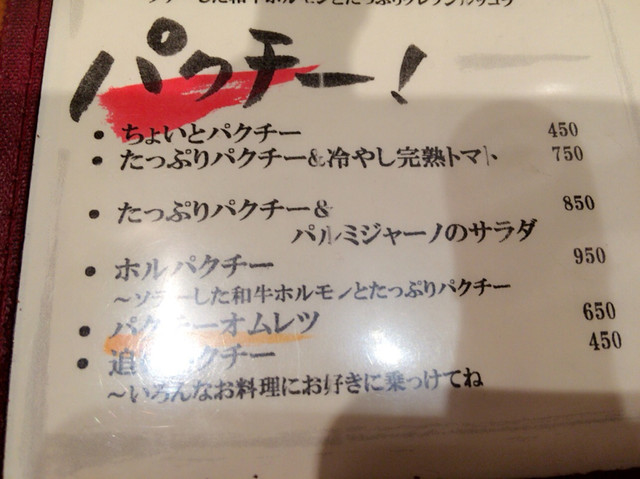 パクチー！
・ちょいとパクチー 450
・たっぷりパクチー&冷やし完熟トマト 750
・たっぷりパクチー& 850
パルミジャーノのサラダ
・ホルパクチー 950
～ソテーした和牛ホルモンとたっぷりパクチー
・パクチーオムレツ 650
・追いパクチー 450
～いろんなお料理にお好きに乗っけてね